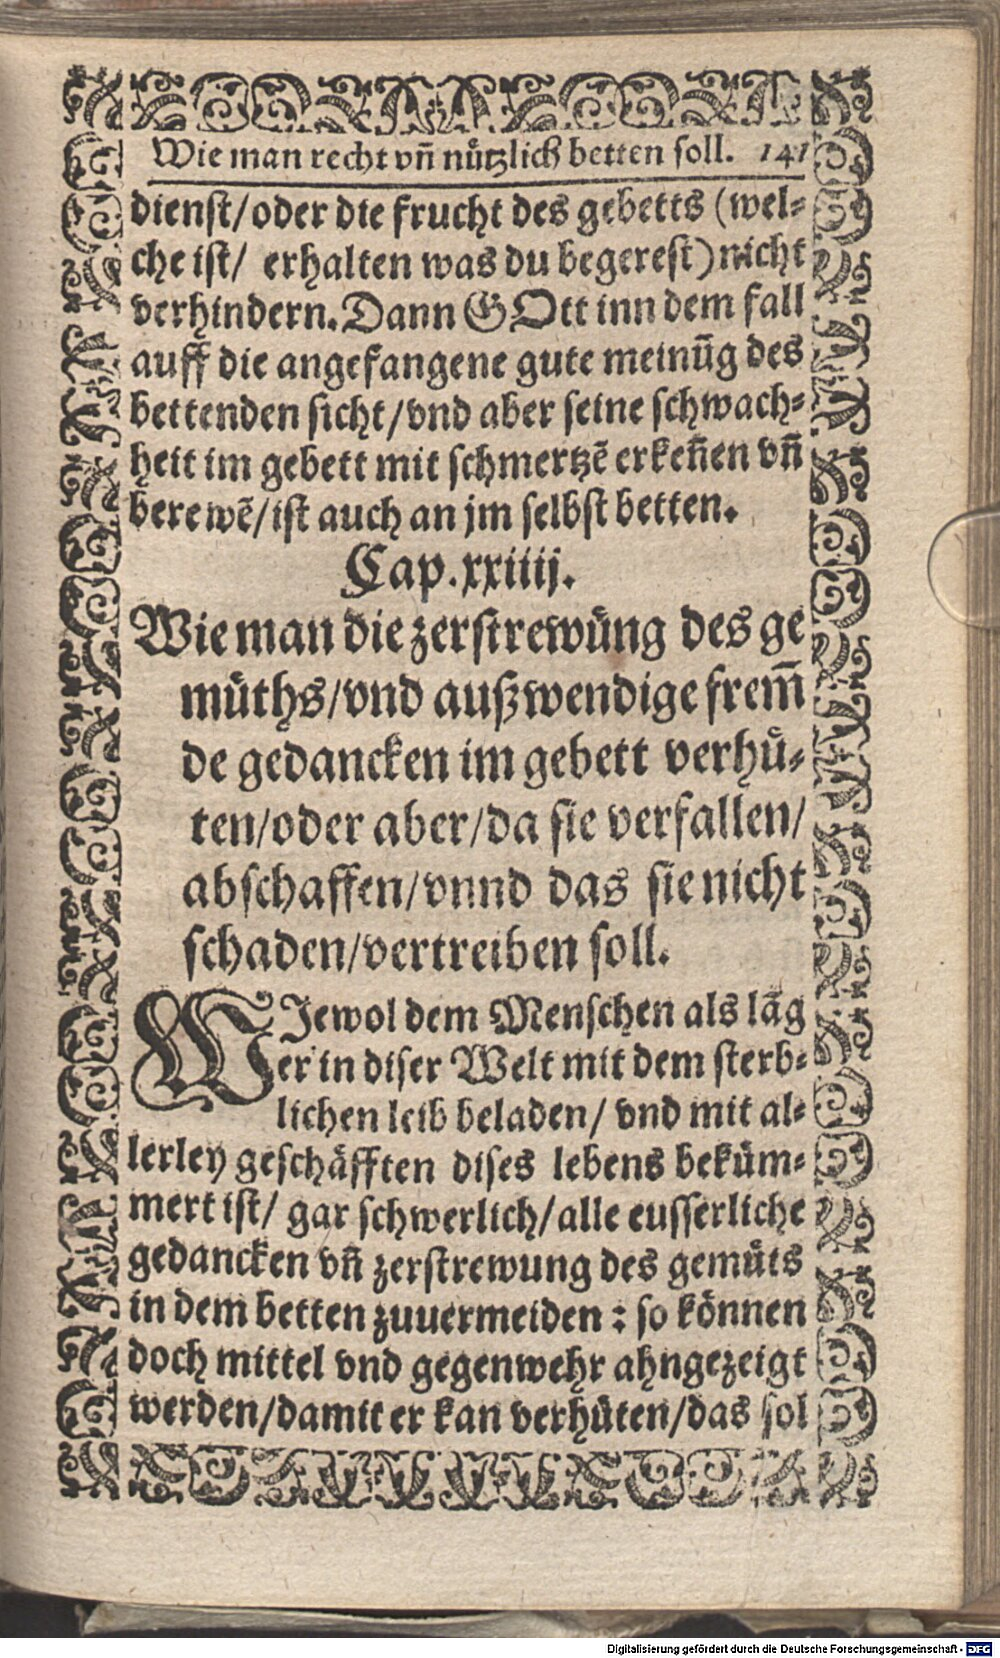 Wie man recht vñ nützlich betten soll. 141
dienst/oder die frucht des gebetts (wel-
che ist/ erhalten was du begerest) nicht
verhindern. Dann GOtt inn dem fall
auff die angefangene gute meinūg des
bettenden sicht/vnd aber seine schwach-
heit im gebett mit schmertzē erkeñen vñ
berewē/ist auch an jm selbst betten.
Cap. xxiiij.
Wie man die zerstrewüng des ge
müths/vnd außwendige frem̃
de gedancken im gebett verhü-
ten/oder aber/da sie verfallen/
abschaffen/vnnd das sie nicht
schaden/vertreiben soll.
WJewol dem Menschen als lāg
er in diser Welt mit dem sterb-
lichen leib beladen/ vnd mit al-
lerley geschäfften dises lebens beküm-
mert ist/ gar schwerlich/alle eusserliche
gedancken vñ zerstrewung des gemüts
in dem betten zuuermeiden : so können
doch mittel vnd gegenwehr ahngezeigt
werden/damit er kan verhüten/das sol
Digitalisierung gefördert durch die Deutsche Forschungsgemeinschaft - DFG